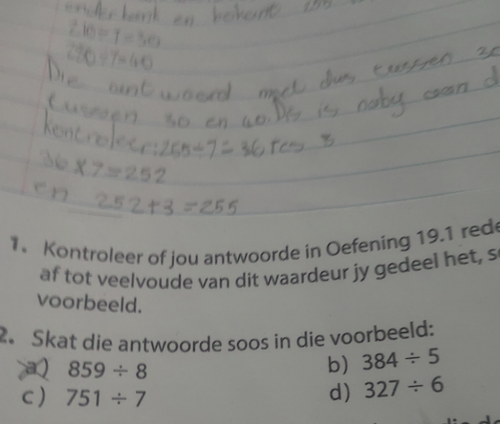 onderkant en bokant
210÷7=30
280÷7=40
Die antwoord met dus tussen 30
tussen 30 en 40. Dis is naby aan d
Kontroleer: 255÷7=36 res 3
36×7=252
en 252+3=255
1. Kontroleer of jou antwoorde in Oefening 19.1 rede
af tot veelvoude van dit waardeur jy gedeel het, s
voorbeeld.
2. Skat die antwoorde soos in die voorbeeld:
a) 859 ÷ 8
b) 384 ÷ 5
c) 751 ÷ 7
d) 327 ÷ 6